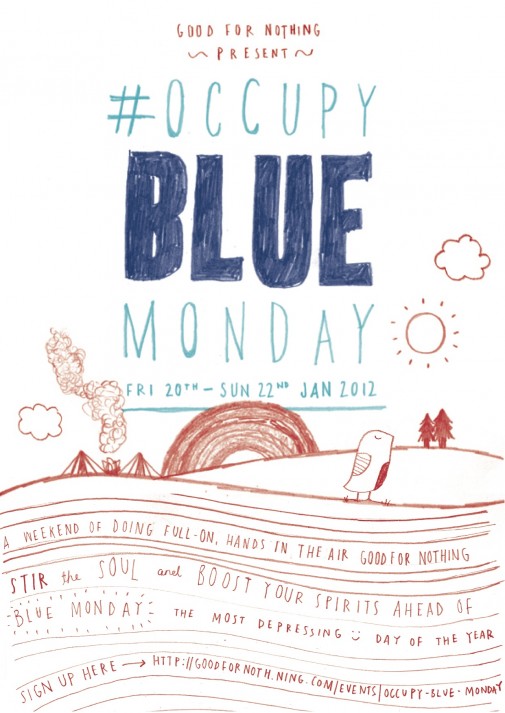 GOOD FOR NOTHING
PRESENT
#OCCUPY
BLUE
MONDAY
FRI 20TH - SUN 22ND JAN 2012
A WEEKEND OF DOING FULL-ON, HANDS IN THE AIR GOOD FOR NOTHING
STIR the SOUL and BOOST YOUR SPIRITS AHEAD OF
BLUE MONDAY THE MOST DEPRESSING DAY OF THE YEAR
SIGN UP HERE → HTTP://GOODFORNOTH.NING.COM/EVENTS/OCCUPY-BLUE-MONDAY